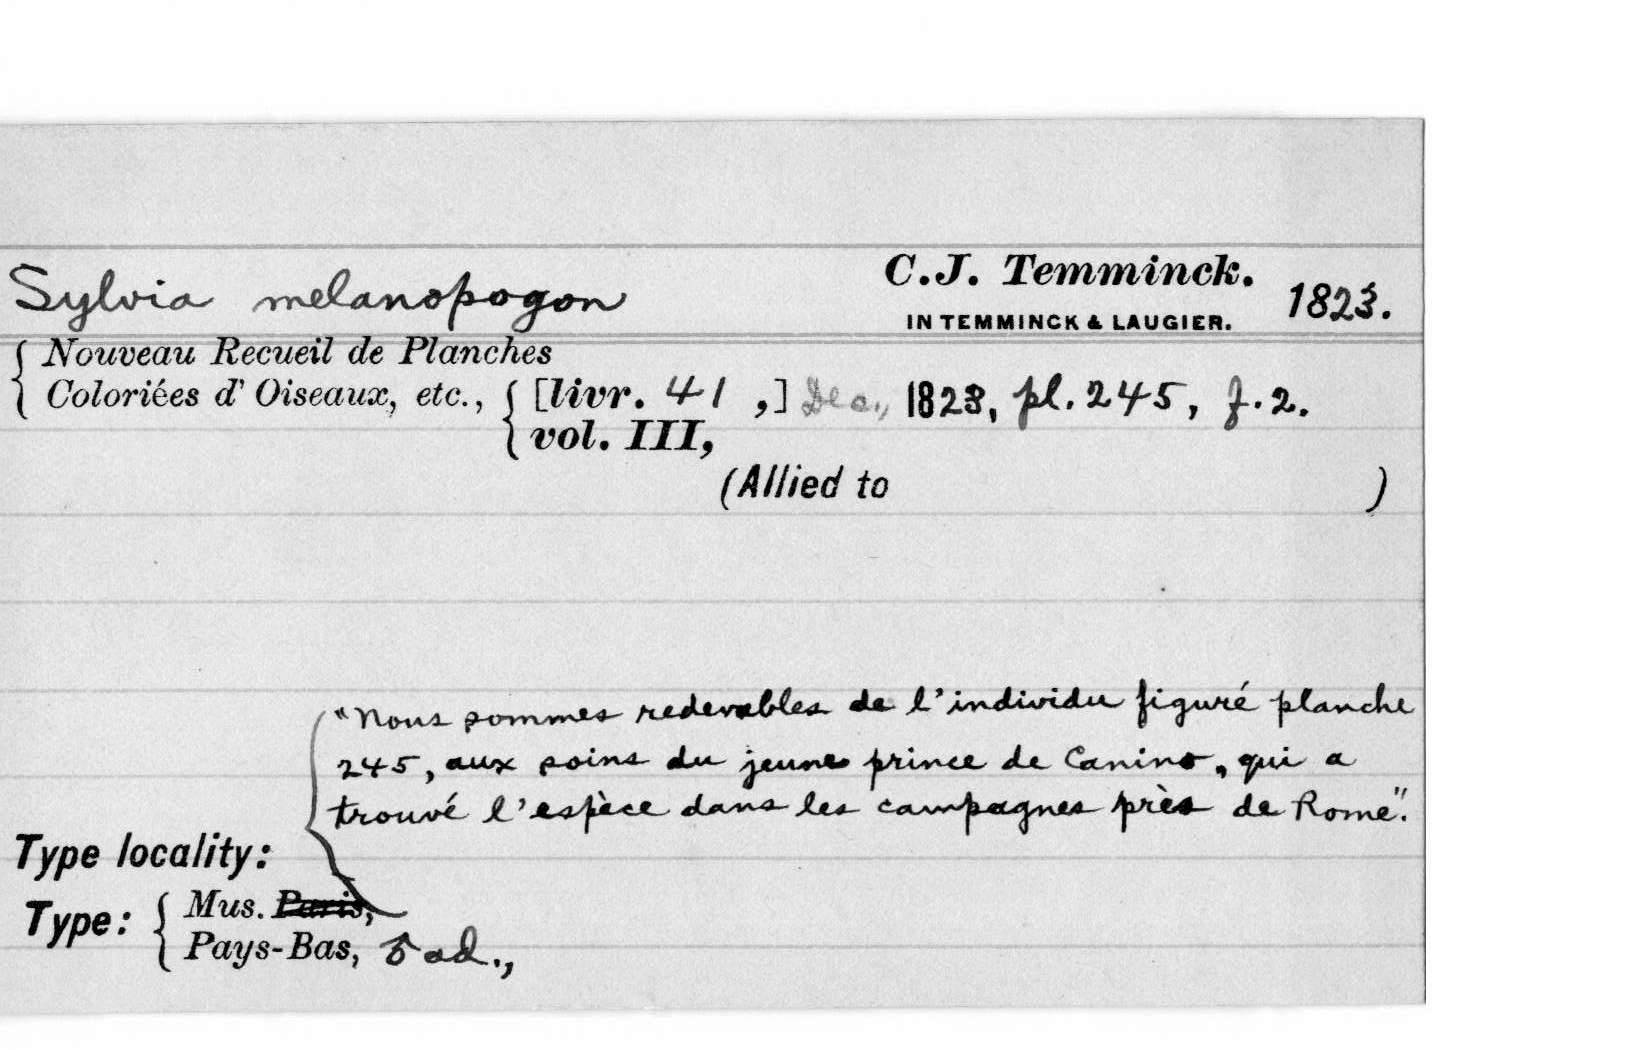 Sylvia melanopogon C.J. Temminck. 1823.
IN TEMMINCK & LAUGIER.
{ Nouveau Recueil de Planches
Coloriées d' Oiseaux, etc., { [livr. 41 ,] Dec., 1823, pl. 245, f. 2.
vol. III,
(Allied to )
"Nous sommes redevables de l'individu figuré planche
245, aux soins du jeune prince de Canino, qui a
trouvé l'espèce dans les campagnes près de Rome".
Type locality:
Type: { Mus. Paris,
Pays-Bas, ♂ ad.,